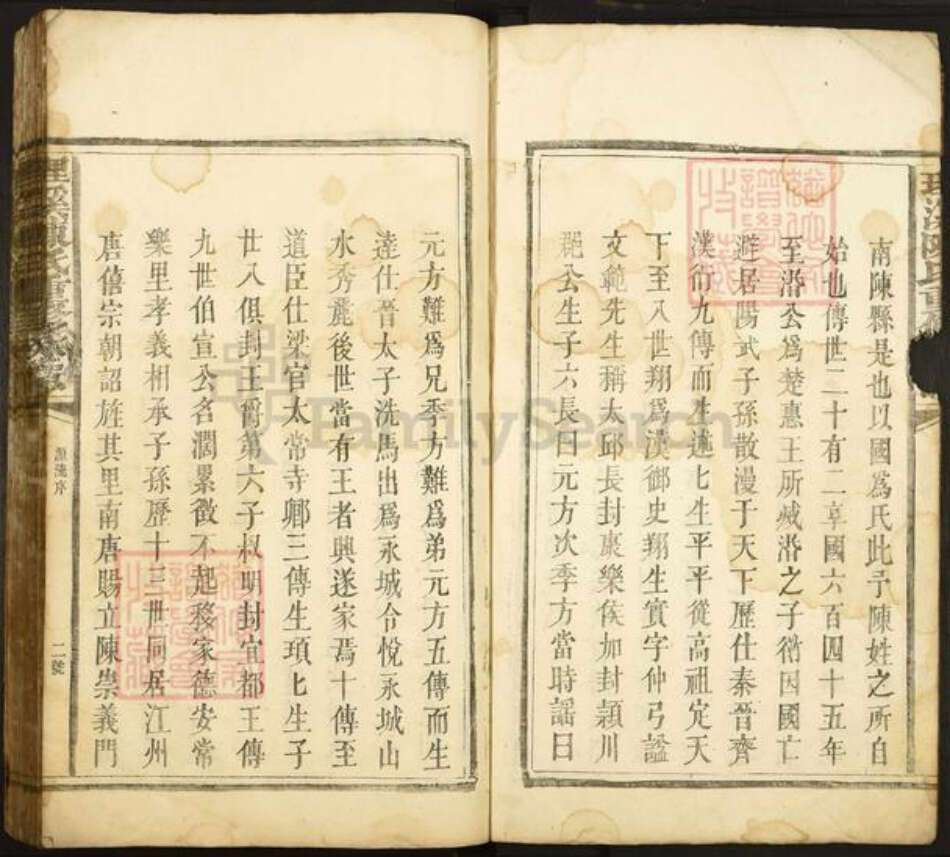 南陳縣是也以國爲氏此予陳姓之所自
始也傳世二十有二享國六百四十五年
至湣公爲楚惠王所滅湣之子衍因國亡
避居陽武子孫散漫于天下歷仕秦晉齊
漢衍九傳而生遂匕生平平從高祖定天
下至八世翔爲漢御史翔生實字仲弓諡
文範先生稱太邱長封康樂侯加封潁川
郡公生子六長曰元方次季方當時謠曰
元方難爲兄季方難爲弟元方五傳而生
逵仕晉太子洗馬出爲永城令悅永城山
水秀麗後世當有王者興遂家焉十傳至
道臣仕梁官太常寺卿三傳生頊匕生子
廿八俱封王爵第六子叔明封宜都王傳
九世伯宣公名濶累徵不起移家德安常
樂里孝義相承子孫歷十三世同居江州
唐僖宗朝詔旌其里南唐賜立陳崇義門
源流序
二號
FamilySearch